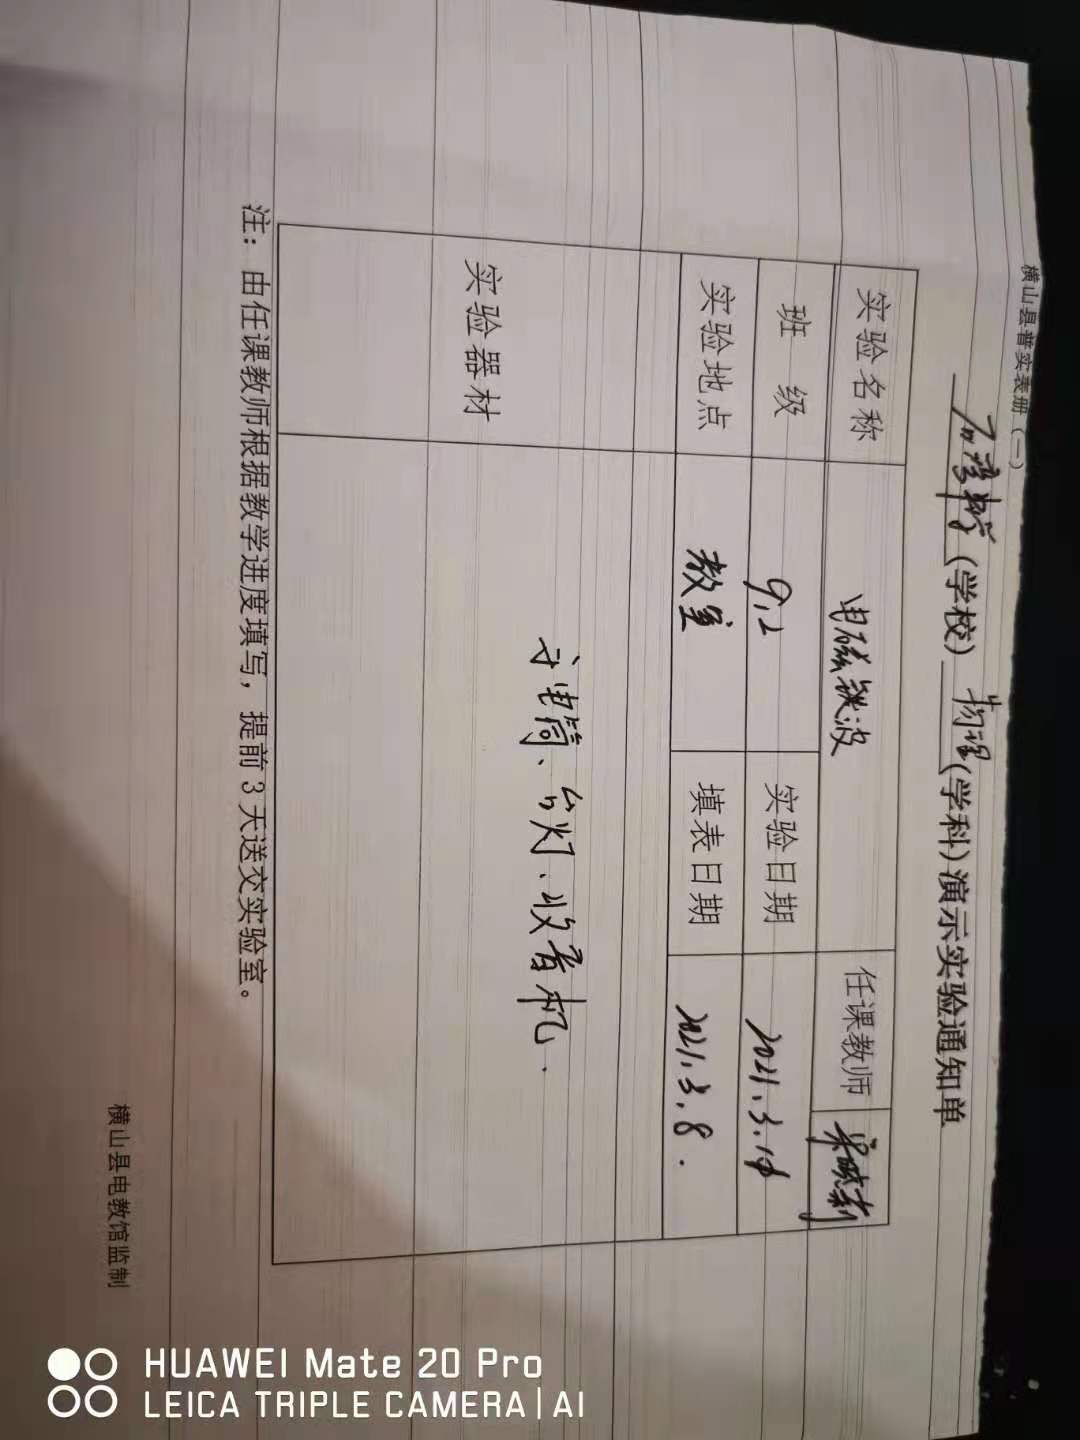 横山县普实表册(一)
石湾中学(学校)物理(学科)演示实验通知单
实验名称 电磁波 任课教师
班 级 9.2 实验日期 2021.3.14
实验地点 教室 填表日期 2021.3.8.
实验器材 手电筒、台灯、收音机.
注: 由任课教师根据教学进度填写, 提前3天送交实验室。
横山县电教馆监制
HUAWEI Mate 20 Pro
LEICA TRIPLE CAMERA | AI